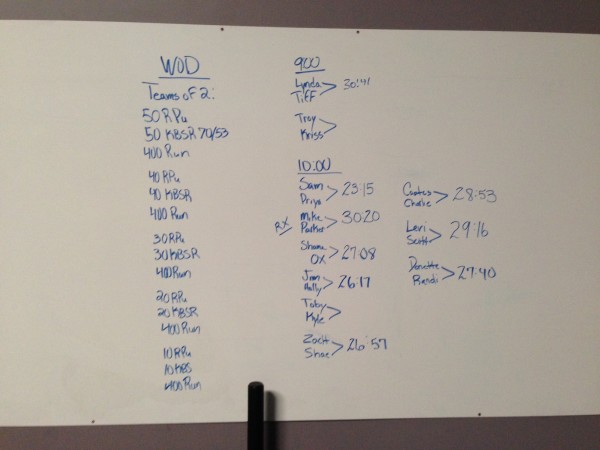 WOD
Teams of 2:
50 RPu
50 KBSR 70/53
400 Run
40 RPu
40 KBSR
400 Run
30 RPu
30 KBSR
400 Run
20 RPu
20 KBSR
400 Run
10 RPu
10 KBS
400 Run
900
Lynda
Tiff > 30:41
Troy
Kriss >
10:00
Sam
Priya > 23:15
RX
Mike
Parker > 30:20
Shane
OX > 27:08
Jim
Holly > 26:17
Toby
Kyle >
Zach
Shae > 26:57
Charlie > 28:53
Levi
Scott > 29:16
Donette
Randi > 27:40